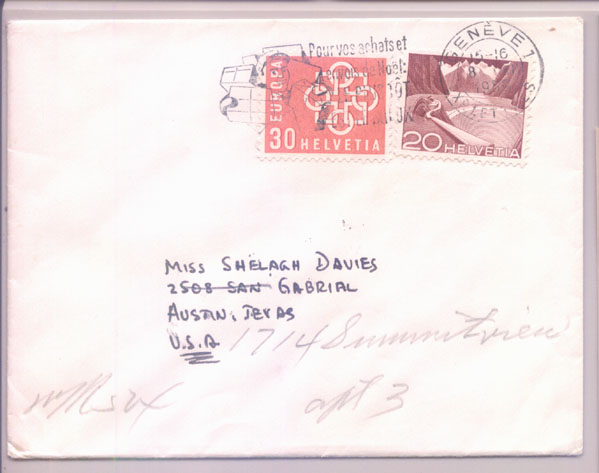 Pour vos achats et
envois de Noël:
GENÈVE 1
15-16
EUROPA
30 HELVETIA
20 HELVETIA
MISS SHELAGH DAVIES
2508 SAN GABRIAL
AUSTIN, TEXAS
U.S.A 1714 Summitview
apt 3